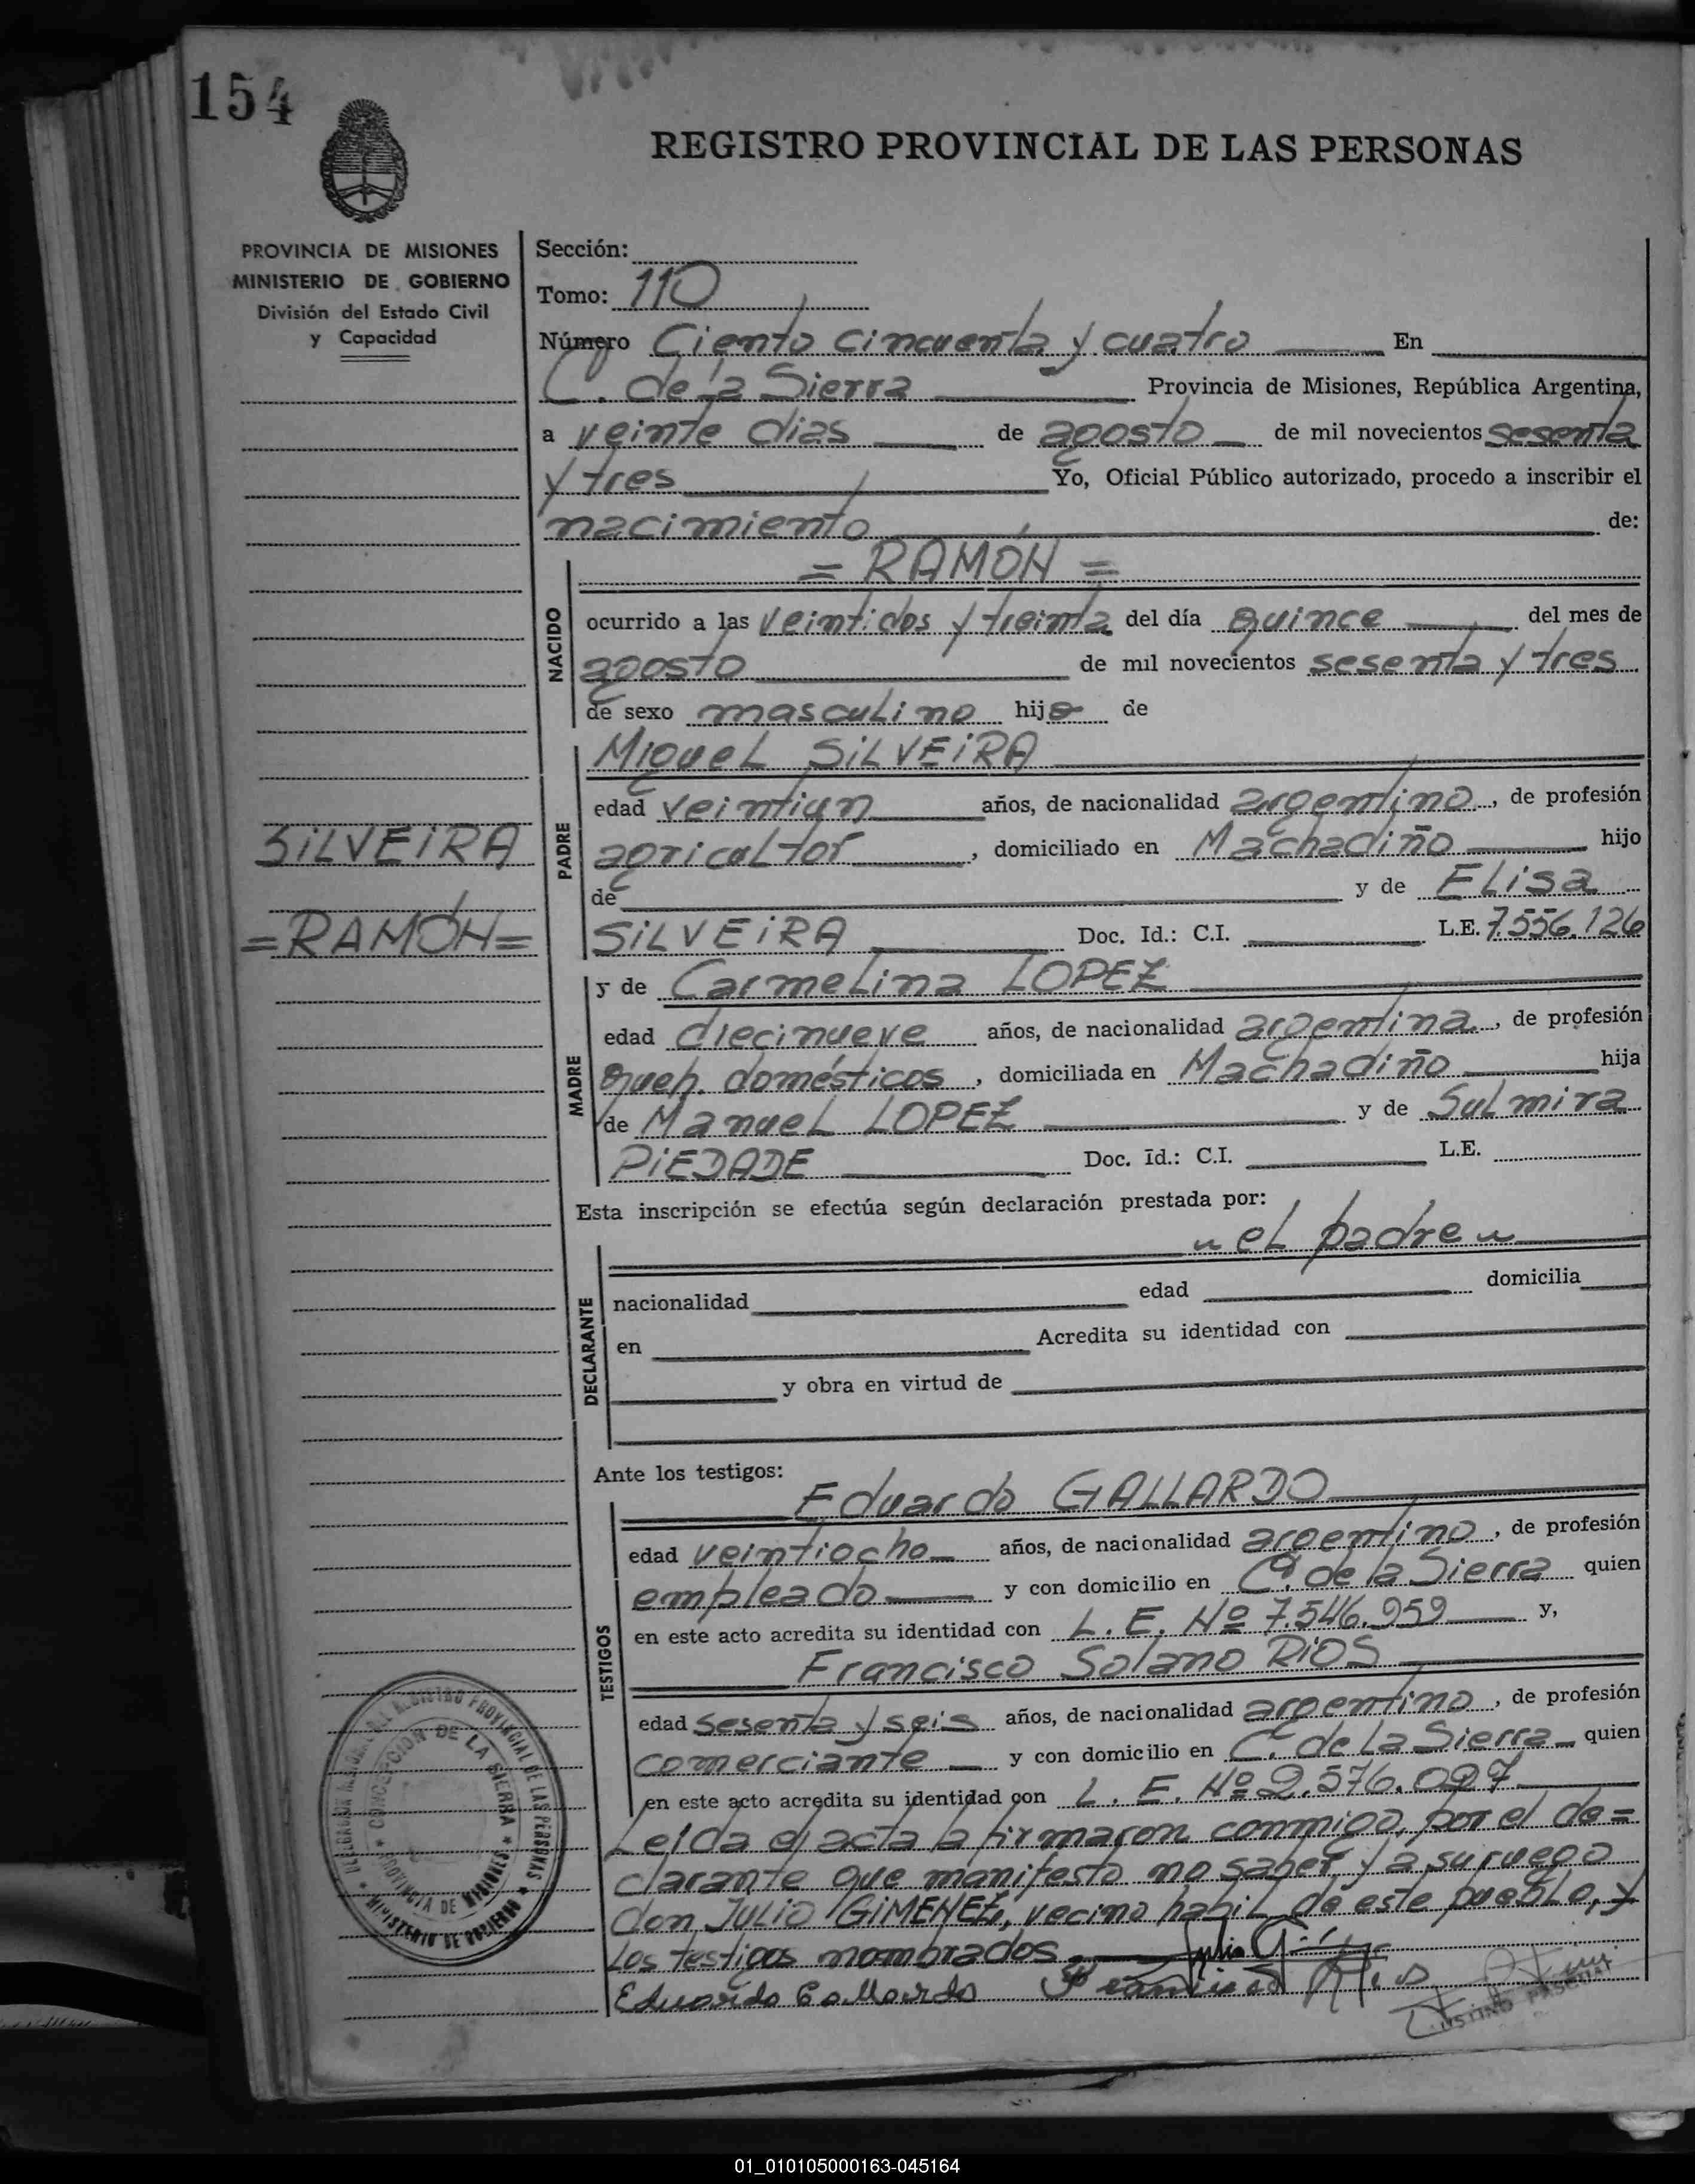 154
REGISTRO PROVINCIAL DE LAS PERSONAS
PROVINCIA DE MISIONES
MINISTERIO DE GOBIERNO
División del Estado Civil
y Capacidad
SILVEIRA
=RAMÓN=
Sección:
Tomo: 110
Número Ciento cincuenta y cuatro En
C. de la Sierra Provincia de Misiones, República Argentina,
a veinte dias de agosto de mil novecientos sesenta
y tres Yo, Oficial Público autorizado, procedo a inscribir el
nacimiento de:
NACIDO
= RAMÓN =
ocurrido a las veintidos y treinta del día quince del mes de
agosto de mil novecientos sesenta y tres
de sexo masculino hijo de
PADRE
Miguel SILVEIRA
edad veintiun años, de nacionalidad argentino, de profesión
agricultor, domiciliado en Machadiño hijo
de y de Elisa
SILVEIRA Doc. Id.: C.I. L.E. 7.556.126
MADRE
y de Carmelina LOPEZ
edad diecinueve años, de nacionalidad argentina, de profesión
queh. domésticos, domiciliada en Machadiño hija
de Manuel LOPEZ y de Sulmira
PIEDADE Doc. Id.: C.I. L.E.
Esta inscripción se efectúa según declaración prestada por:
el padre
DECLARANTE
nacionalidad edad domicilia
en Acredita su identidad con
y obra en virtud de
Ante los testigos:
TESTIGOS
Eduardo GALLARDO
edad veintiocho años, de nacionalidad argentino, de profesión
empleado y con domicilio en C. de la Sierra quien
en este acto acredita su identidad con L. E. Nº 7.546.959 y,
Francisco Solano RIOS
edad sesenta y seis años, de nacionalidad argentino, de profesión
comerciante y con domicilio en C. de la Sierra quien
en este acto acredita su identidad con L. E. Nº 2.576.027
Leida el acta la firmaron conmigo, por el de=
clarante que manifesto no saber y a su ruego
don JULIO GIMENEZ, vecino habil de este pueblo, y
los testigos nombrados.
Julio
Eduardo Gallardo Francisco Rios
PROVINCIAL DE LAS PERSONAS * MINISTERIO DE GOBIERNO *
* CONCEPCION DE LA SIERRA * PROVINCIA DE MISIONES
01_010105000163-045164